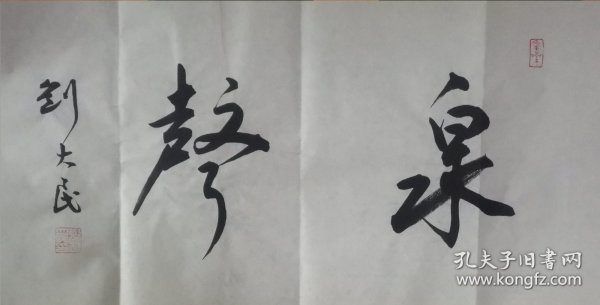 泉聲
劉大民
孔夫子旧书网
www.kongfz.com